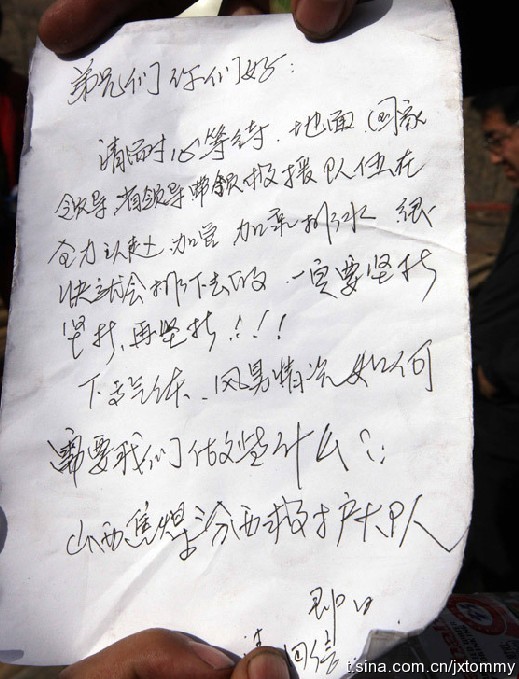 弟兄们你们好：
请耐心等待．地面国家
领导，省领导带领救援队伍在
全力以赴．加管加泵排水 很
快就会排下去的．一定要坚持
坚持，再坚持！！！
下
气体、风量情况如何
需要我们做些什么？：
山西焦煤汾西救护大队
即日
请回信
t.sina.com.cn/jxtommy